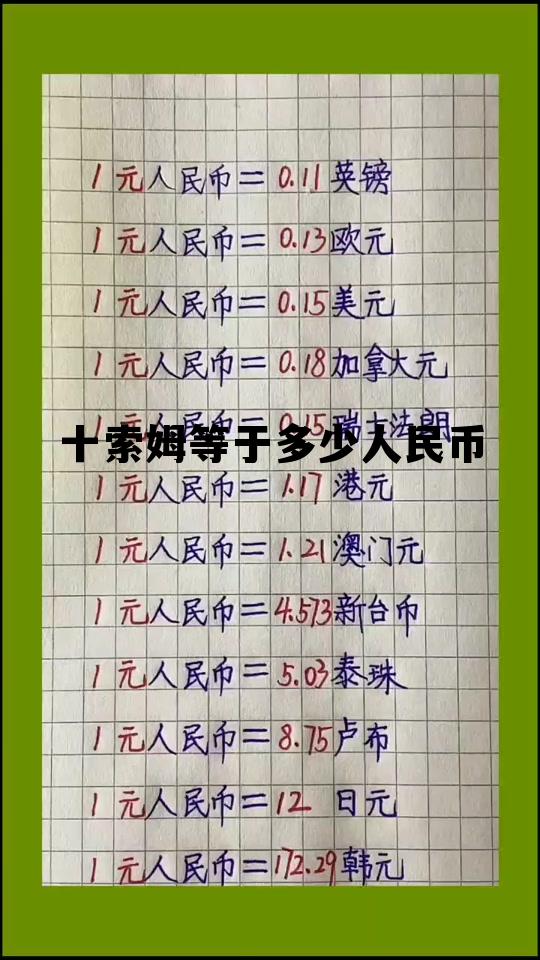 1元人民币=0.11英镑
1元人民币=0.13欧元
1元人民币=0.15美元
1元人民币=0.18加拿大元
1元人民币=0.15瑞士法朗
十索姆等于多少人民币
1元人民币=1.17港元
1元人民币=1.21澳门元
1元人民币=4.573新台币
1元人民币=5.03泰珠
1元人民币=8.75卢布
1元人民币=12 日元
1元人民币=172.29韩元